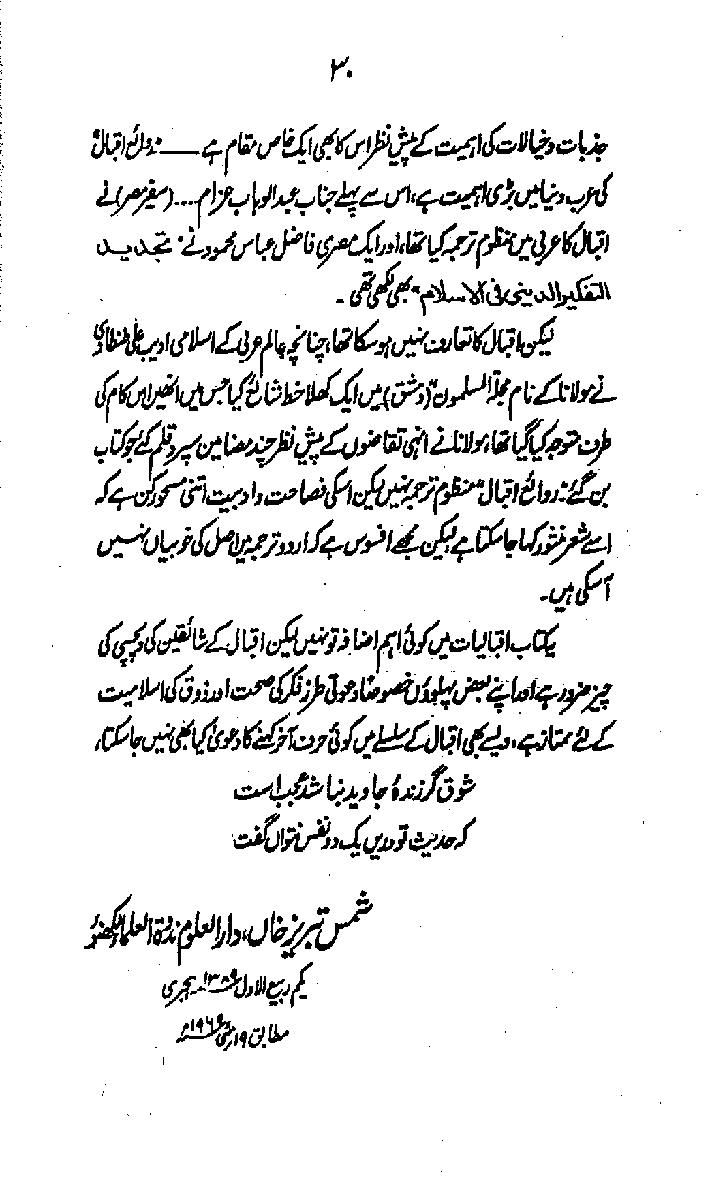 ۳۰
جذبات و خیالات کی اہمیت کے پیش نظر اس کا بھی ایک خاص مقام ہے ــــ روائع اقبال
کی عرب دنیا میں بڑی اہمیت ہے، اس سے پہلے جناب عبدالوہاب عزام ... (سفیر مصر) نے
اقبال کا عربی میں منظوم ترجمہ کیا تھا، اور ایک مصری فاضل عباس محمود نے "تجدید
التفکیر الدینی فی الاسلام" بھی لکھی تھی ۔
لیکن اقبال کا تعارف نہیں ہو سکا تھا، چنانچہ عالم عربی کے اسلامی ادیب علی طنطاوی
نے مولانا کے نام مجلۃ "المسلمون" (دمشق) میں ایک کھلا خط شائع کیا جس میں انھیں اس کام کی
طرف متوجہ کیا گیا تھا، مولانا نے انہی تقاضوں کے پیش نظر چند مضامین سپرد قلم کئے جو کتاب
بن گئے "روائع اقبال" منظوم ترجمہ نہیں لیکن اسکی فصاحت و ادبیت اتنی مسحور کن ہے کہ
اسے شعر منثور کہا جا سکتا ہے لیکن مجھے افسوس ہے کہ اردو ترجمہ میں اصل کی خوبیاں نہیں
آسکی ہیں۔
یہ کتاب اقبالیات میں کوئی اہم اضافہ تو نہیں لیکن اقبال کے شائقین کی دلچسپی کی
چیز ضرور ہے اور اپنے بعض پہلوؤں خصوصاً دعوتی طرز فکر کی صحت اور ذوق کی اسلامیت
کے لئے ممتاز ہے، ویسے بھی اقبال کے سلسلے میں کوئی حرف آخر کہنے کا دعویٰ کیا بھی نہیں جا سکتا،
شوق گر زندۂ جاوید نباشد عجب است
کہ حدیث تو دریں یک دو نفس نتواں گفت
شمس تبریز خاں، دارالعلوم ندوۃ العلماء لکھنؤ
یکم ربیع الاول ۱۳۸۹ ہجری
مطابق ۱۹ مئی ۱۹۶۹ء